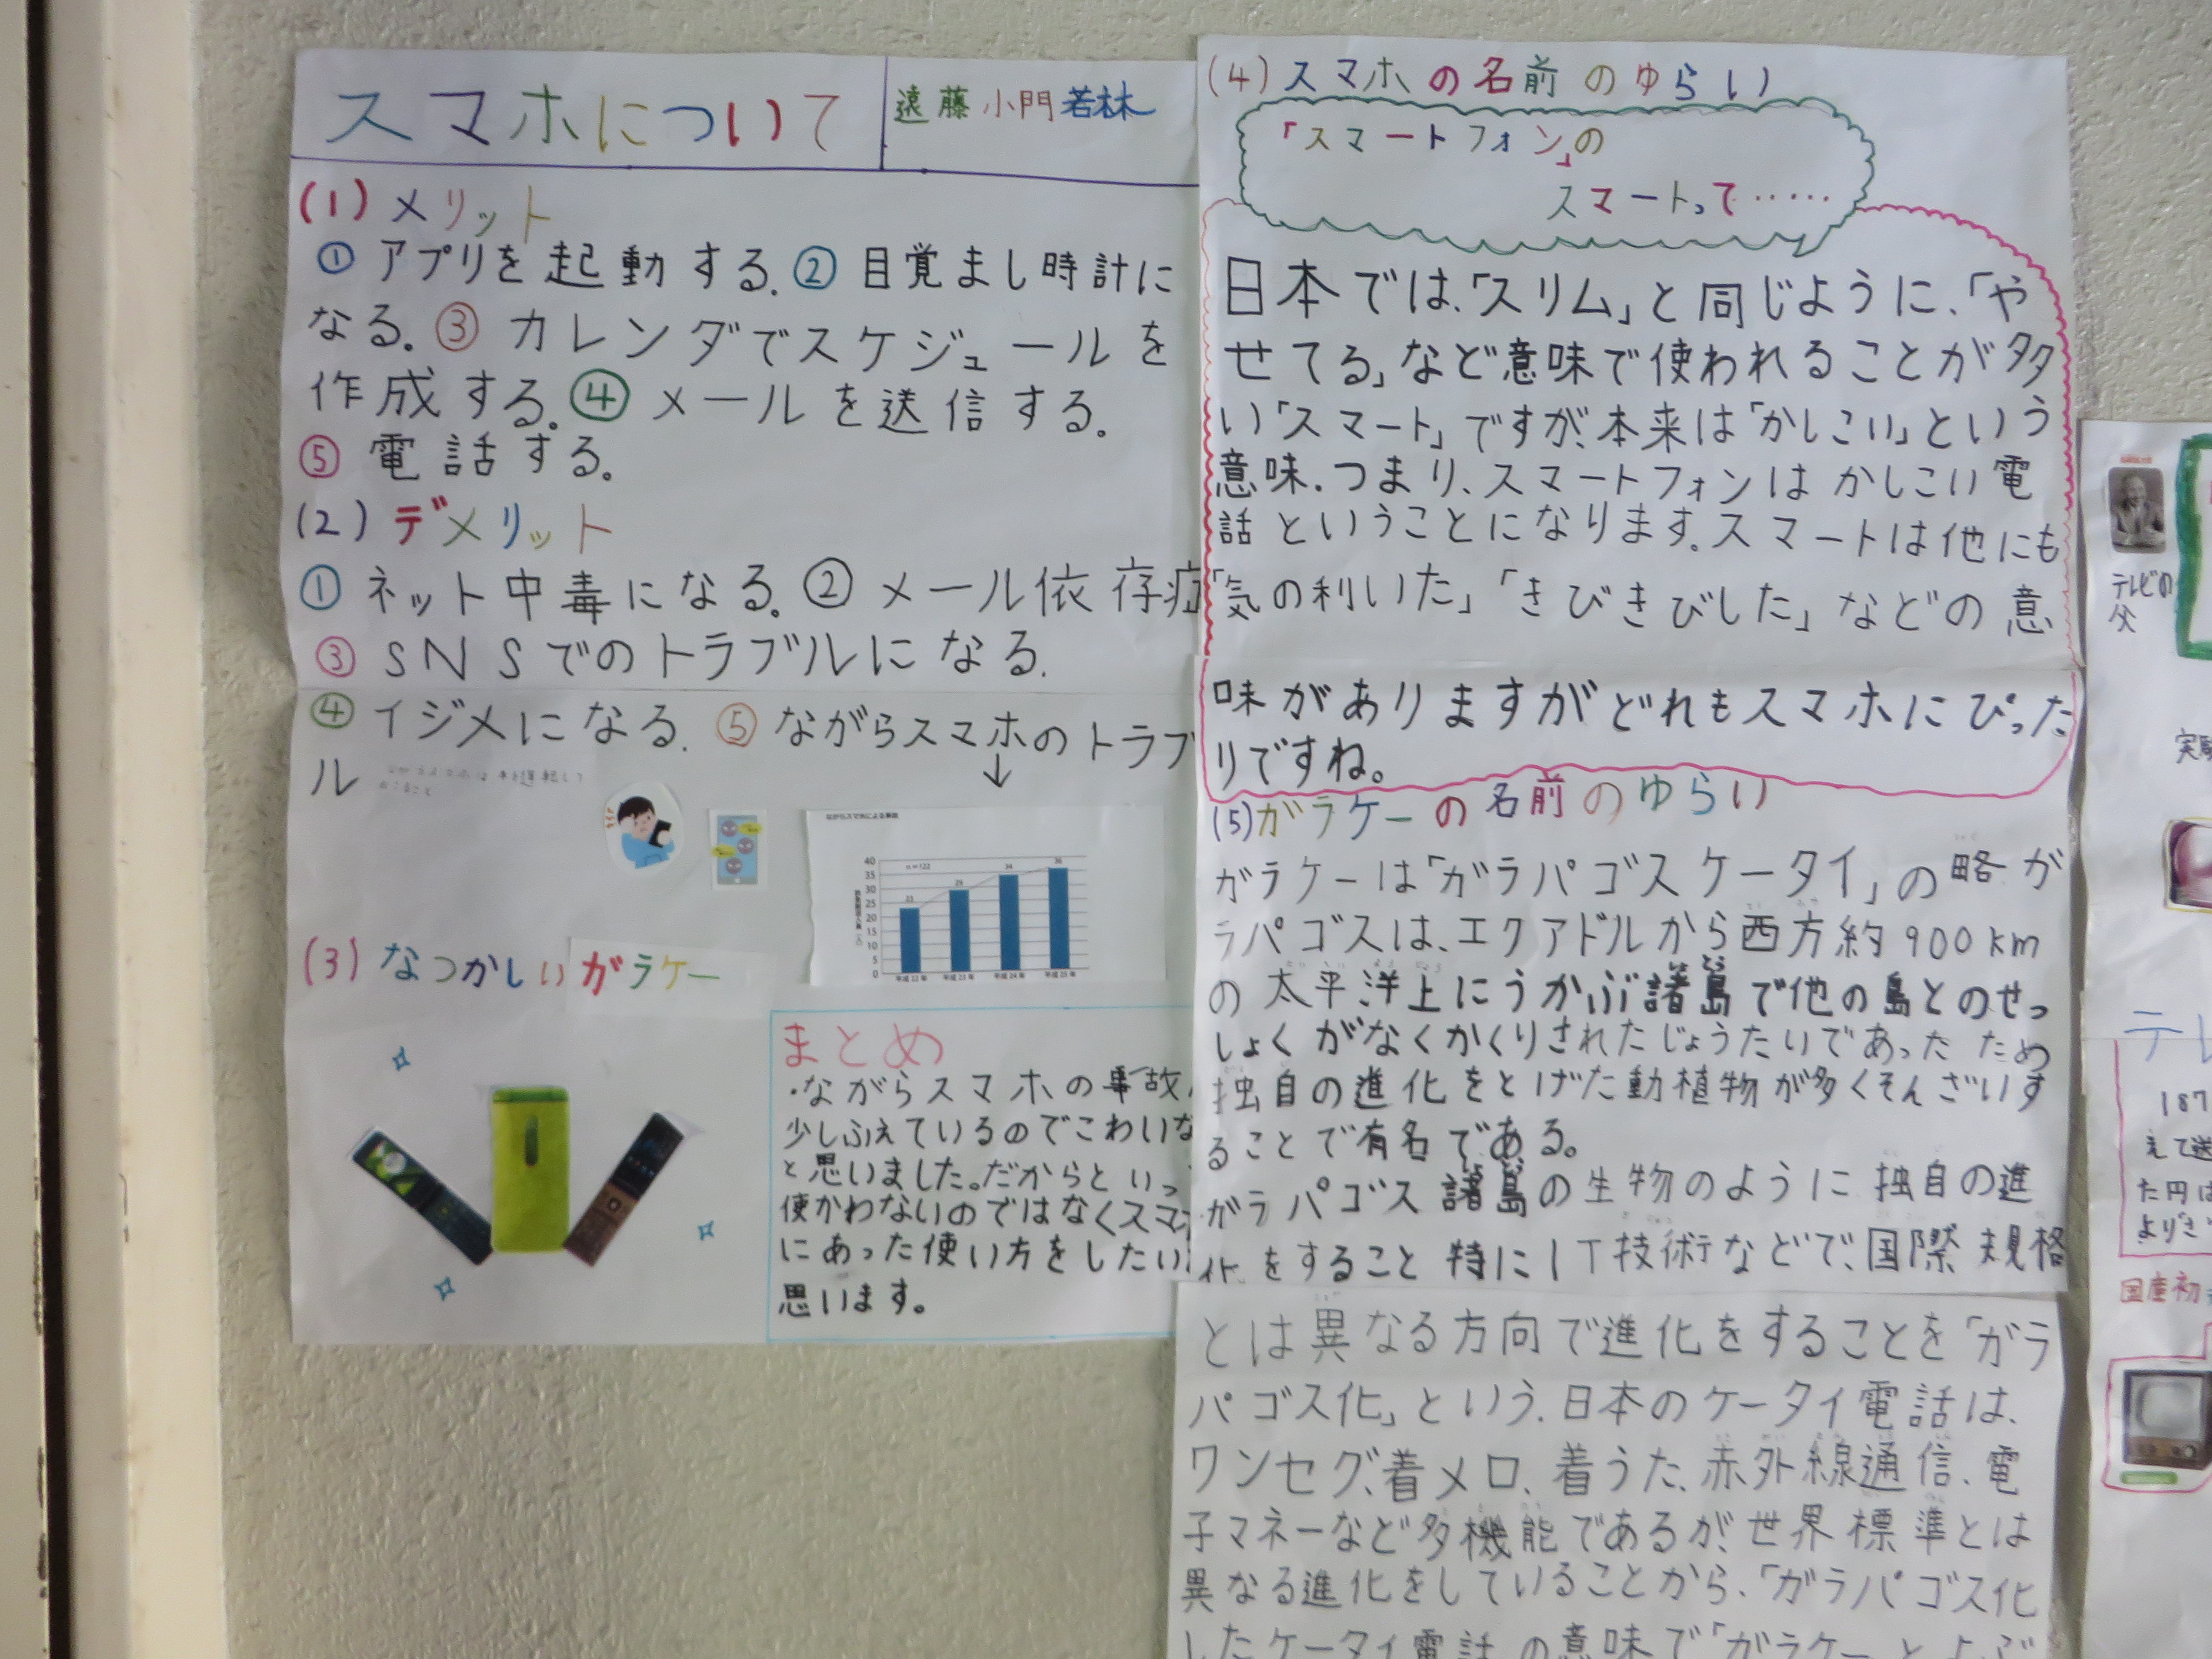 スマホについて
遠藤 小門 若林
(1)メリット
①アプリを起動する.②目覚まし時計に
なる。③カレンダでスケジュールを
作成する。④メールを送信する。
⑤電話する。
(2)デメリット
①ネット中毒になる。②メール依存症
③SNSでのトラブルになる.
④イジメになる.⑤ながらスマホのトラブ
ル
↓
ながらスマホによる事故
n=122
40
35
30
25
20
15
10
5
0
23
29
34
36
平成22年
平成23年
平成24年
平成25年
(3)なつかしいガラケー
まとめ
・ながらスマホの事故
少しふえているのでこわいな
と思いました。だからといっ
使かわないのではなくスマ
にあった使い方をしたい
思います。
(4)スマホの名前のゆらい
「スマートフォン」の
スマートって‥‥‥
日本では、「スリム」と同じように、「や
せてる」など意味で使われることが多
い「スマート」ですが、本来は「かしこい」という
意味.つまり、スマートフォンはかしこい電
話ということになります。スマートは他にも
「気の利いた」「きびきびした」などの意
味がありますがどれもスマホにぴった
りですね。
(5)ガラケーの名前のゆらい
ガラケーは「ガラパゴスケータイ」の略.ガ
ラパゴスは、エクアドルから西方約900km
の太平洋上にうかぶ諸島で他の島とのせっ
しょくがなくかくりされたじょうたいであったため
独自の進化をとげた動植物が多くそんざいす
ることで有名である。
ガラパゴス諸島の生物のように独自の進
化をすること特にIT技術などで、国際規格
とは異なる方向で進化をすることを「ガラ
パゴス化」という.日本のケータイ電話は、
ワンセグ、着メロ、着うた、赤外線通信、電
子マネーなど多機能であるが、世界標準とは
異なる進化をしていることから、「ガラパゴス化
したケータイ電話の意味で「ガラケーとよぶ
テレビの
父
実
テレ
187
えて送
た円は
国産初